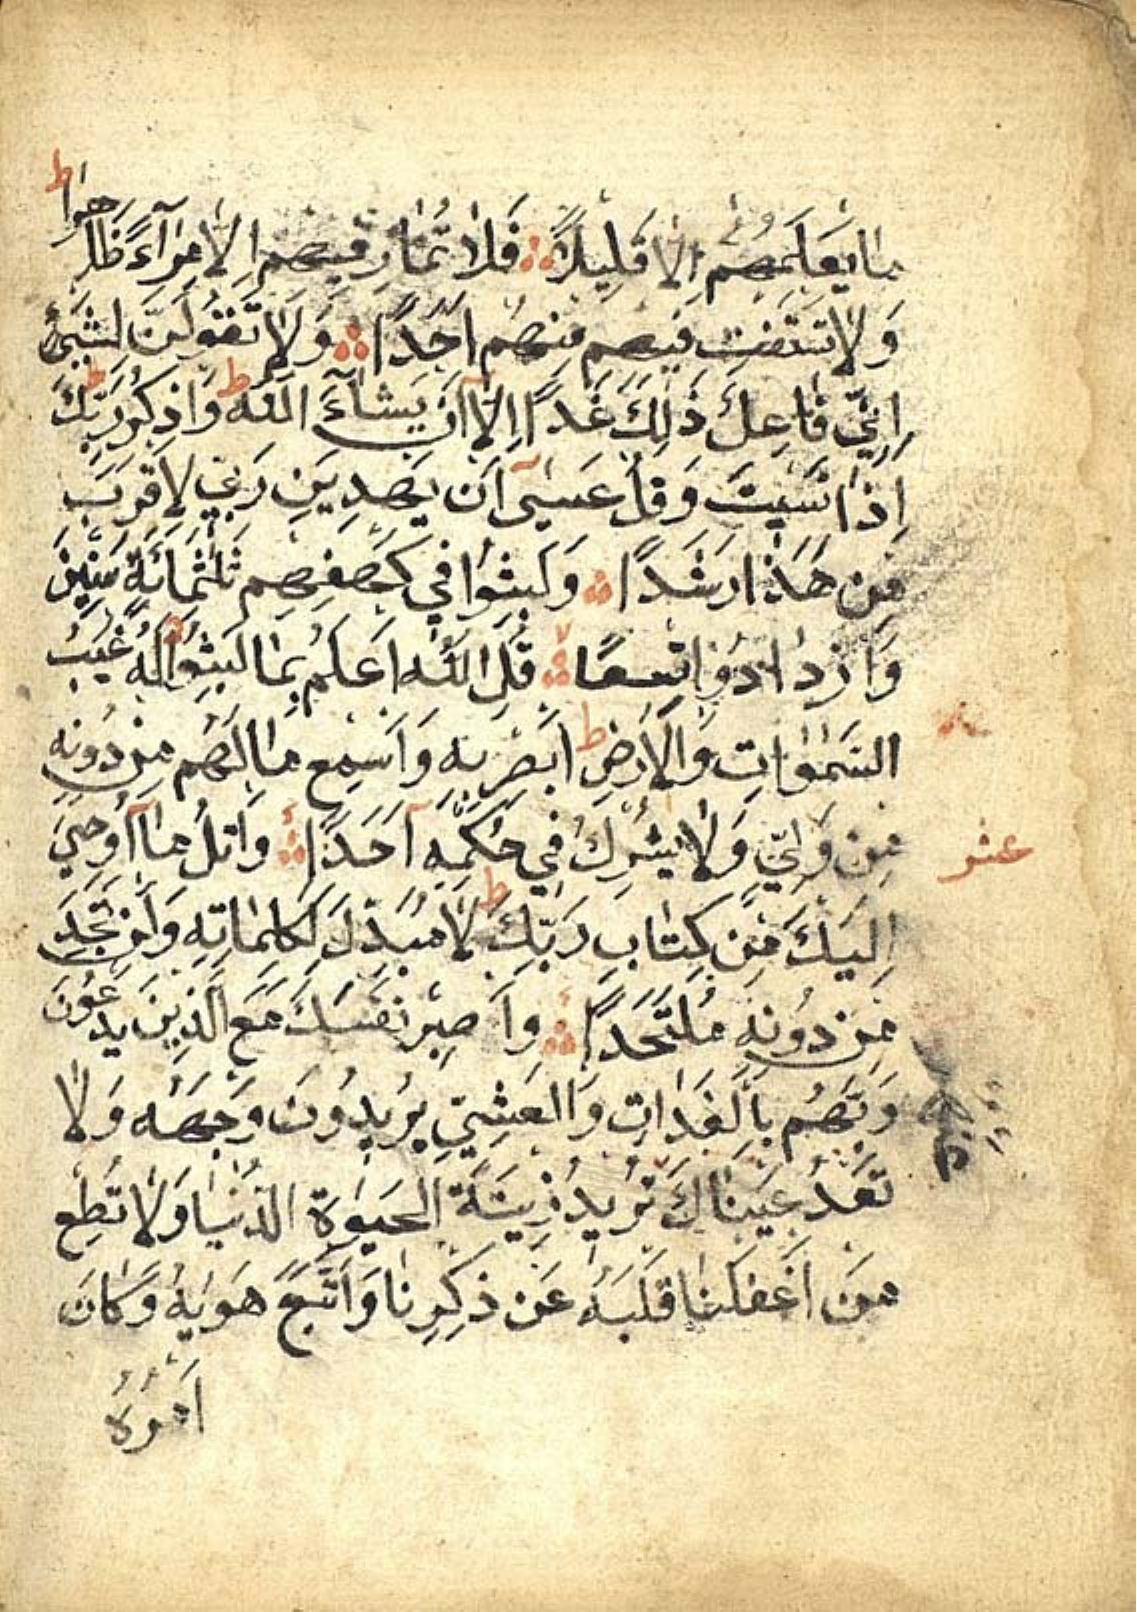 مَا يَعْلَمُهُمْ اِلَّا قَلِيلٌ فَلَا تُمَارِ فِيهِمْ اِلَّا مِرَآءً ظَاهِرًا ط
وَلَا تَسْتَفْتِ فِيهِمْ مِنْهُمْ اَحَدًا وَلَا تَقُولَنَّ لِشَيْءٍ
اِنِّي فَاعِلٌ ذٰلِكَ غَدًا اِلَّا اَنْ يَشَآءَ اللّٰهُ ط وَاذْكُرْ رَبَّكَ ط
اِذَا نَسِيتَ وَقُلْ عَسٰىٓ اَنْ يَهْدِيَنِ رَبِّي لِاَقْرَبَ
مِنْ هٰذَا رَشَدًا وَلَبِثُوا فِي كَهْفِهِمْ ثَلٰثَمِائَةٍ سِنِينَ
وَازْدَادُوا تِسْعًا قُلِ اللّٰهُ اَعْلَمُ بِمَا لَبِثُوا لَهُ غَيْبُ
السَّمٰوَاتِ وَالْاَرْضِ ط اَبْصِرْ بِهِ وَاَسْمِعْ مَا لَهُمْ مِنْ دُونِهِ
مِنْ وَلِيٍّ وَلَا يُشْرِكُ فِي حُكْمِهِ اَحَدًا وَاتْلُ مَآ اُوحِيَ
عشر
اِلَيْكَ مِنْ كِتَابِ رَبِّكَ ط لَا مُبَدِّلَ لِكَلِمَاتِهِ وَلَنْ تَجِدَ
مِنْ دُونِهِ مُلْتَحَدًا وَاصْبِرْ نَفْسَكَ مَعَ الَّذِينَ يَدْعُونَ
رَبَّهُمْ بِالْغَدَاتِ وَالْعَشِيِّ يُرِيدُونَ وَجْهَهُ وَلَا
تَعْدُ عَيْنَاكَ تُرِيدُ زِينَةَ الْحَيٰوةِ الدُّنْيَا وَلَا تُطِعْ
مَنْ اَغْفَلْنَا قَلْبَهُ عَنْ ذِكْرِنَا وَاتَّبَعَ هَوٰيهُ وَكَانَ
اَمْرُهُ